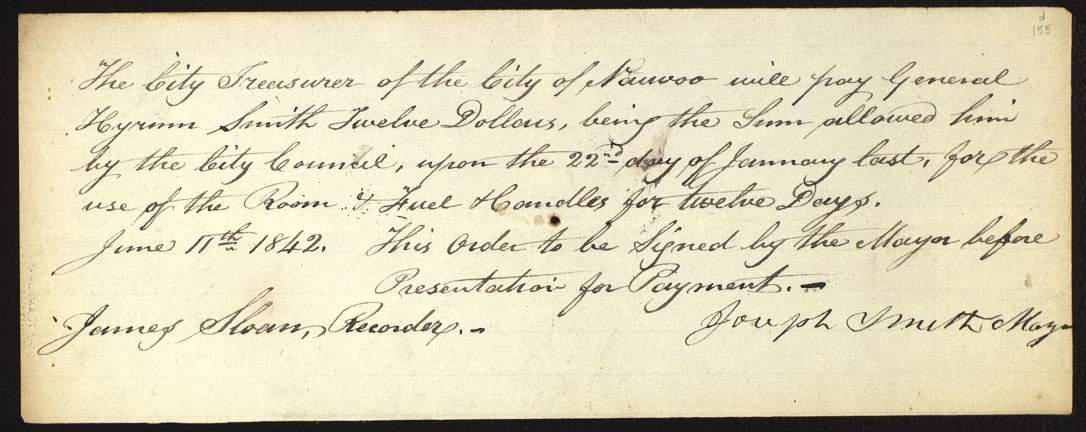 d
155
The City Treasurer of the City of Nauvoo will pay General
Hyrum Smith Twelve Dollars, being the Sum allowed him
by the City Council, upon the 22nd day of January last, for the
use of the Room & Fuel & Candles for twelve Days.
June 11th 1842. This Order to be Signed by the Mayor before
Presentation for Payment.—
James Sloan, Recorder.—
Joseph Smith Mayor